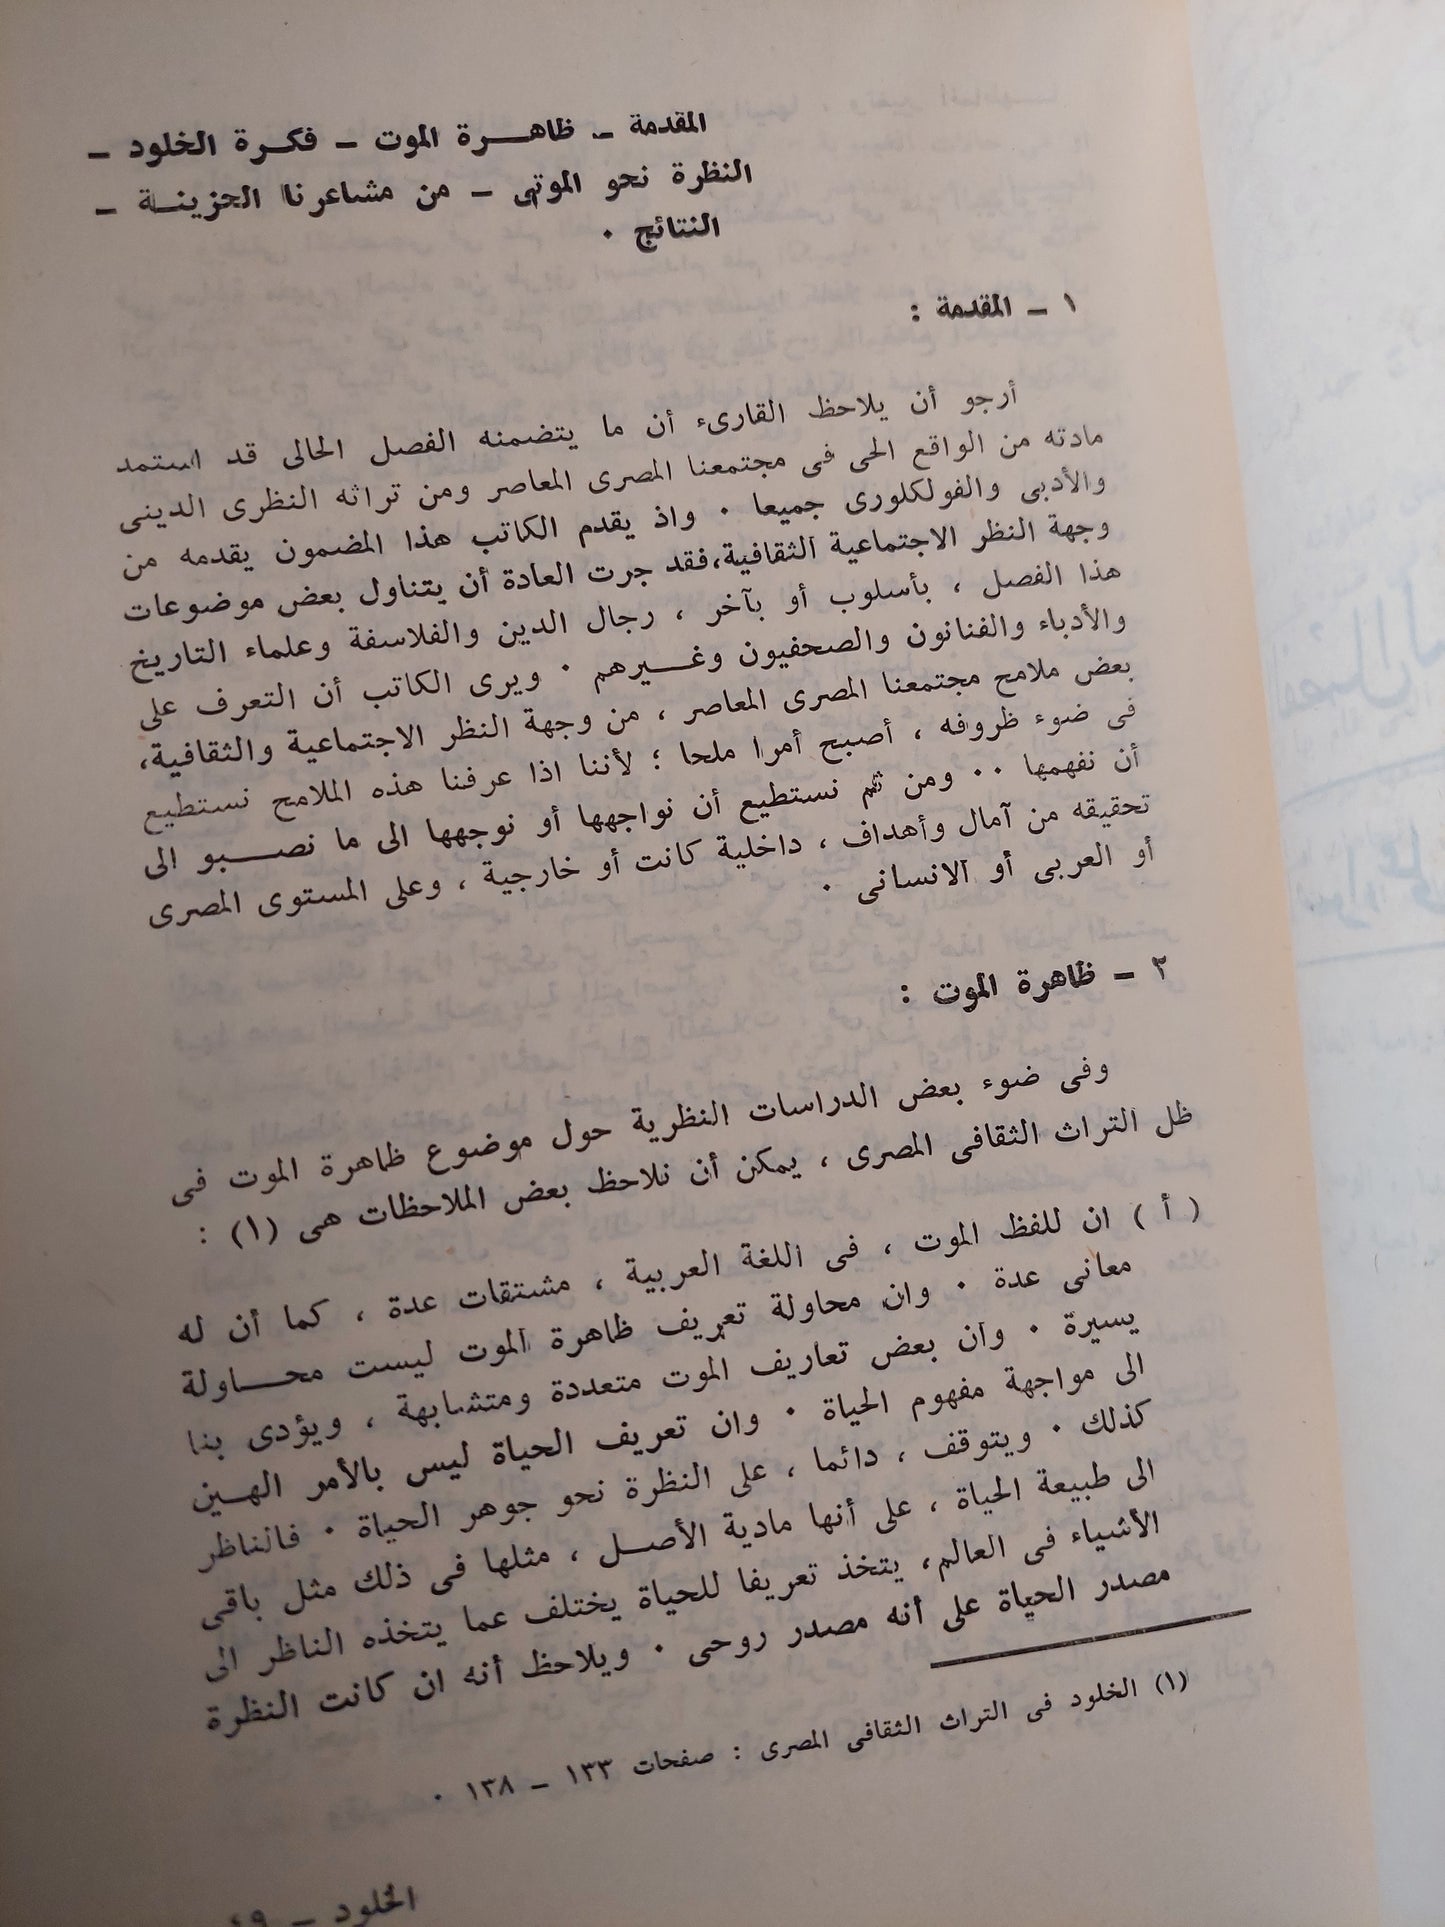 المقدمة ـ ظاهـــرة الموت ـ فكـرة الخلود ـ
النظرة نحو الموتى ـ من مشاعرنا الحزينـة ـ
النتائج ٠
١ ـ المقدمة :
أرجو أن يلاحظ القارىء أن ما يتضمنه الفصل الحالى قد استمد
مادته من الواقع الحى فى مجتمعنا المصرى المعاصر ومن تراثه النظرى الدينى
والأدبى والفولكلورى جميعا ٠ واذ يقدم الكاتب هذا المضمون يقدمه من
وجهة النظر الاجتماعية الثقافية،فقد جرت العادة أن يتناول بعض موضوعات
هذا الفصل ، بأسلوب أو بآخر ، رجال الدين والفلاسفة وعلماء التاريخ
والأدباء والفنانون والصحفيون وغـــيرهم ٠ ويرى الكاتب أن التعرف على
بعض ملامح مجتمعنا المصرى المعاصر ، من وجهة النظر الاجتماعية والثقافية،
فى ضوء ظروفه ، أصبح أمرا ملحا ؛ لأننا اذا عرفنا هذه الملامح نستطيع
أن نفهمها ٠٠ ومن ثم نستطيع أن نواجهها أو نوجهها الى ما نصـــبو الى
تحقيقه من آمال وأهداف ، داخلية كانت أو خارجية ، وعلى المستوى المصرى
أو العربى أو الانسانى ٠
٢ ـ ظاهرة الموت :
وفى ضوء بعض الدراسات النظرية حول موضوع ظاهرة الموت فى
ظل التراث الثقافى المصرى ، يمكن أن نلاحظ بعض الملاحظات هى (١) :
( أ ) ان للفظ الموت ، فى اللغة العربية ، مشتقات عدة ، كما أن له
معانى عدة ٠ وان محاولة تعريف ظاهرة الموت ليست محـــاولة
يسيرة ٠ وان بعض تعاريف الموت متعددة ومتشابهة ، ويؤدى بنا
الى مواجهة مفهوم الحياة ٠ وان تعريف الحياة ليس بالأمر الهـين
كذلك ٠ ويتوقف ، دائما ، على النظرة نحو جوهر الحياة ٠ فالناظر
الى طبيعة الحياة ، على أنها مادية الأصـل ، مثلها فى ذلك مثل باقى
الأشياء فى العالم، يتخذ تعريفا للحياة يختلف عما يتخذه الناظر الى
مصدر الحياة على أنه مصدر روحى ٠ ويلاحظ أنه ان كانت النظرة
(١) الخلود فى التراث الثقافى المصرى : صفحات ١٣٣ ـ ١٣٨ ٠
الخلود ـ ٤٩